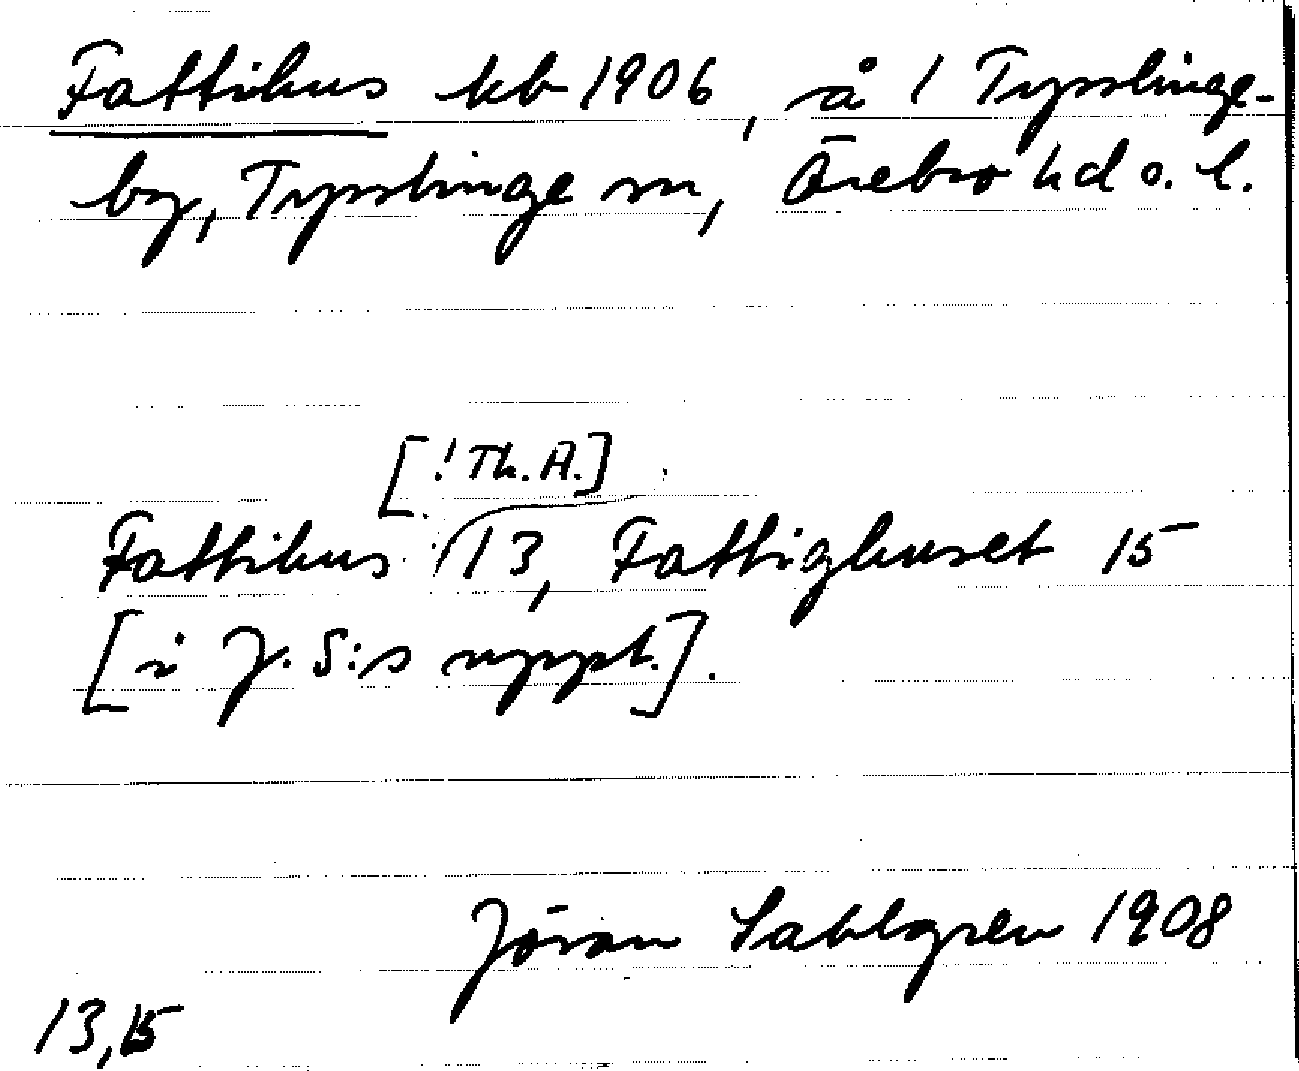 Fattihus kb 1906, å 1 Tysslinge-
by, Tysslinge sn, Örebro hd o. l.
[! Th. A.]
Fattihus 13, Fattighuset 15
[i J. S:s uppt.].
Jöran Sahlgren 1908
13,15